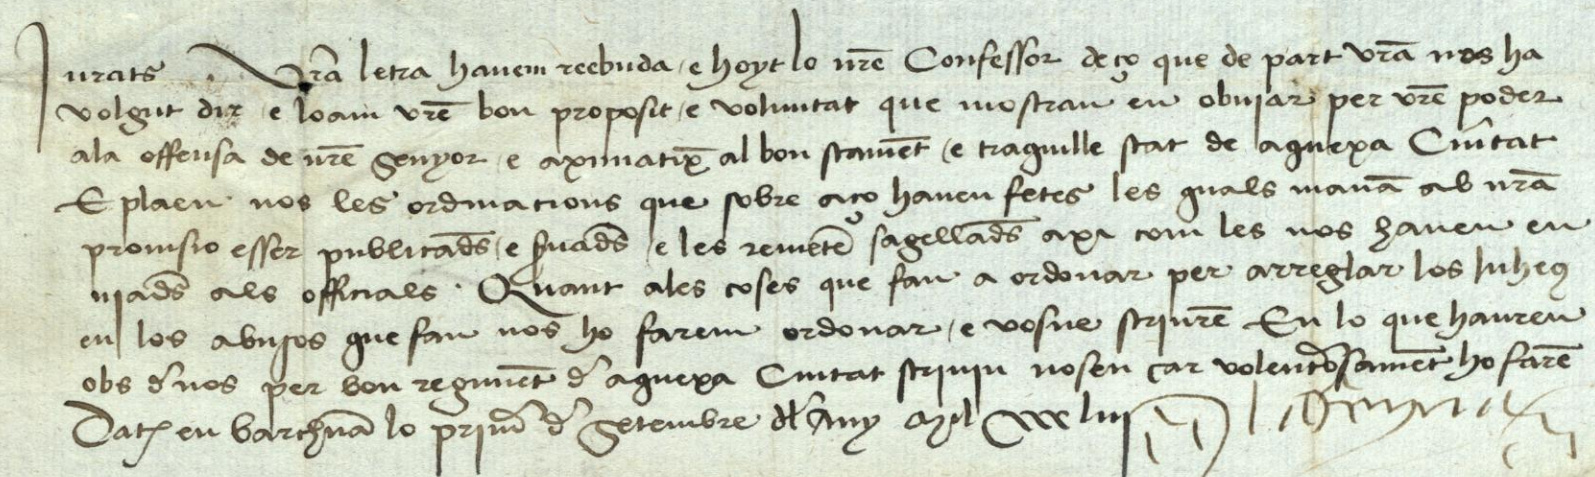 Jurats . Vrã letra havem reebuda / e hoyt lo nrẽ Confessor de ço que de part vrã nos ha
volgut dir / e loam vrẽ bon proposit / e voluntat que mostrau en obuiar per vrẽ poder
ala offensa de nrẽ Senyor / e axi matix̃ al bon stamẽt / e traquille stat de aquexa Ciutat
E plaen nos les ordinacions que sobre aço haueu fetes les quals manã ab nrã
prouisio esser publicads̃ / e seruads̃ / e les remetẽ sagellads̃ axi com les nos haueu en
uiads̃ als officials . Quant ales coses que fan a ordonar per arreglar los juheus
en los abusos que fan nos ho farem ordonar / e vosne scriurẽ En lo que haureu
obs d nos per bon regimẽt d aquexa Ciutat scriuiu nosen car volenterosamẽt ho farẽ
Dat en barchnã lo primer d Setembre dl Any Mil